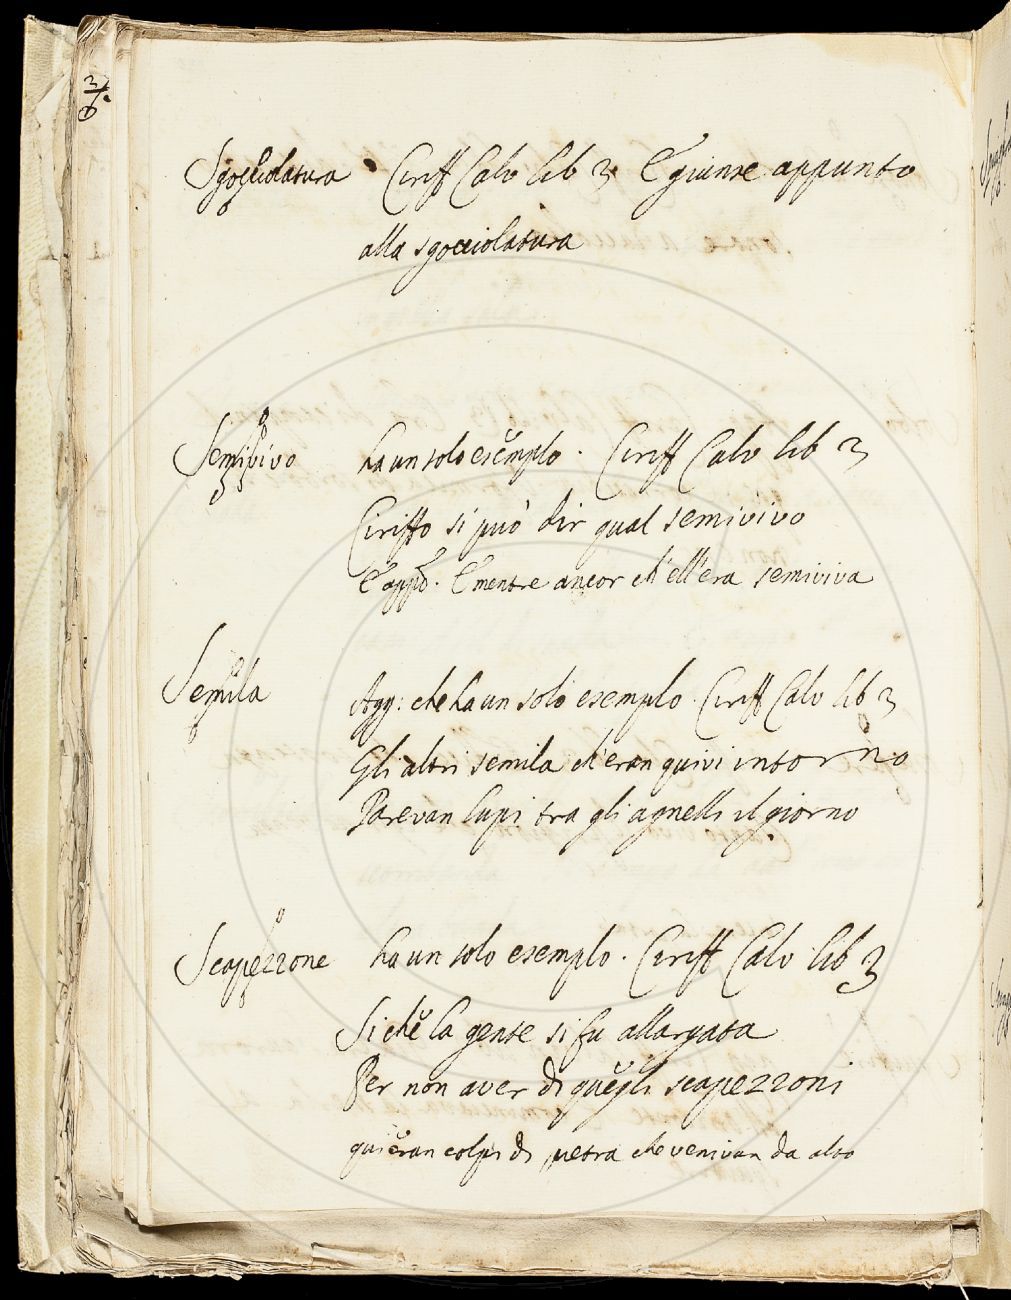 Sgocciolatura Ciriff Calv lib 3 E giunse appunto
alla sgocciolatura
Semivivo ha un solo esemplo. Ciriff Calv lib 3
Ciriffo si può dir qual semivivo
E appo. E mentre ancor ch'ell'era semiviva
Semila Agg: che ha un solo esemplo. Ciriff Calv lib 3
Gli altri semila ch'eran quivi intorno
Parevan lupi tra gli agnelli il giorno
Scapezzone ha un solo esemplo. Ciriff Calv lib 3
Sichè la gente si fu allargata
Per non aver di quegli scapezzoni
qui eran colpi di pietra che venivan da alto